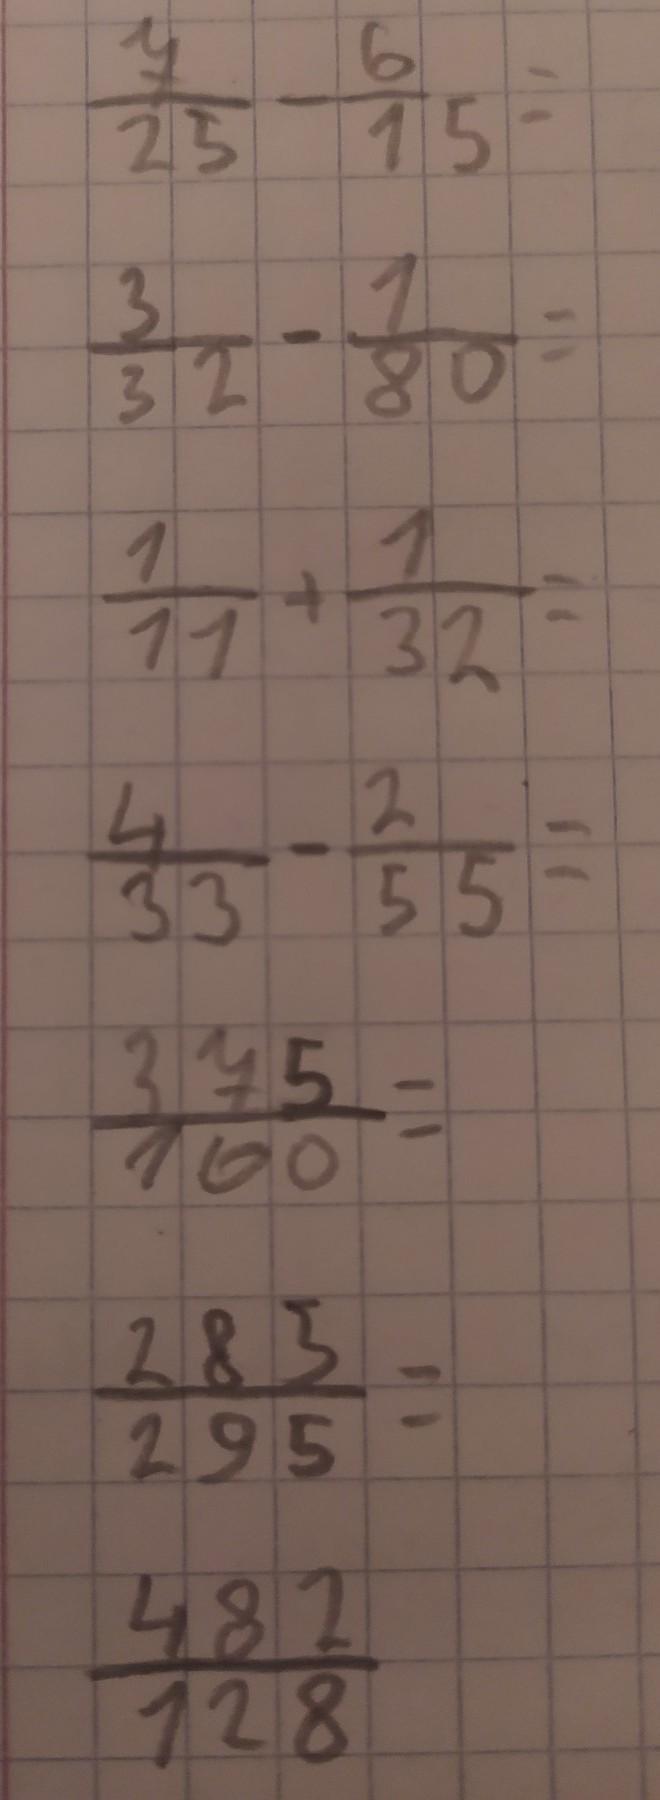 7/25 - 6/15 =
3/32 - 1/80 =
1/11 + 1/32 =
4/33 - 2/55 =
375/160 =
285/295 =
482/128